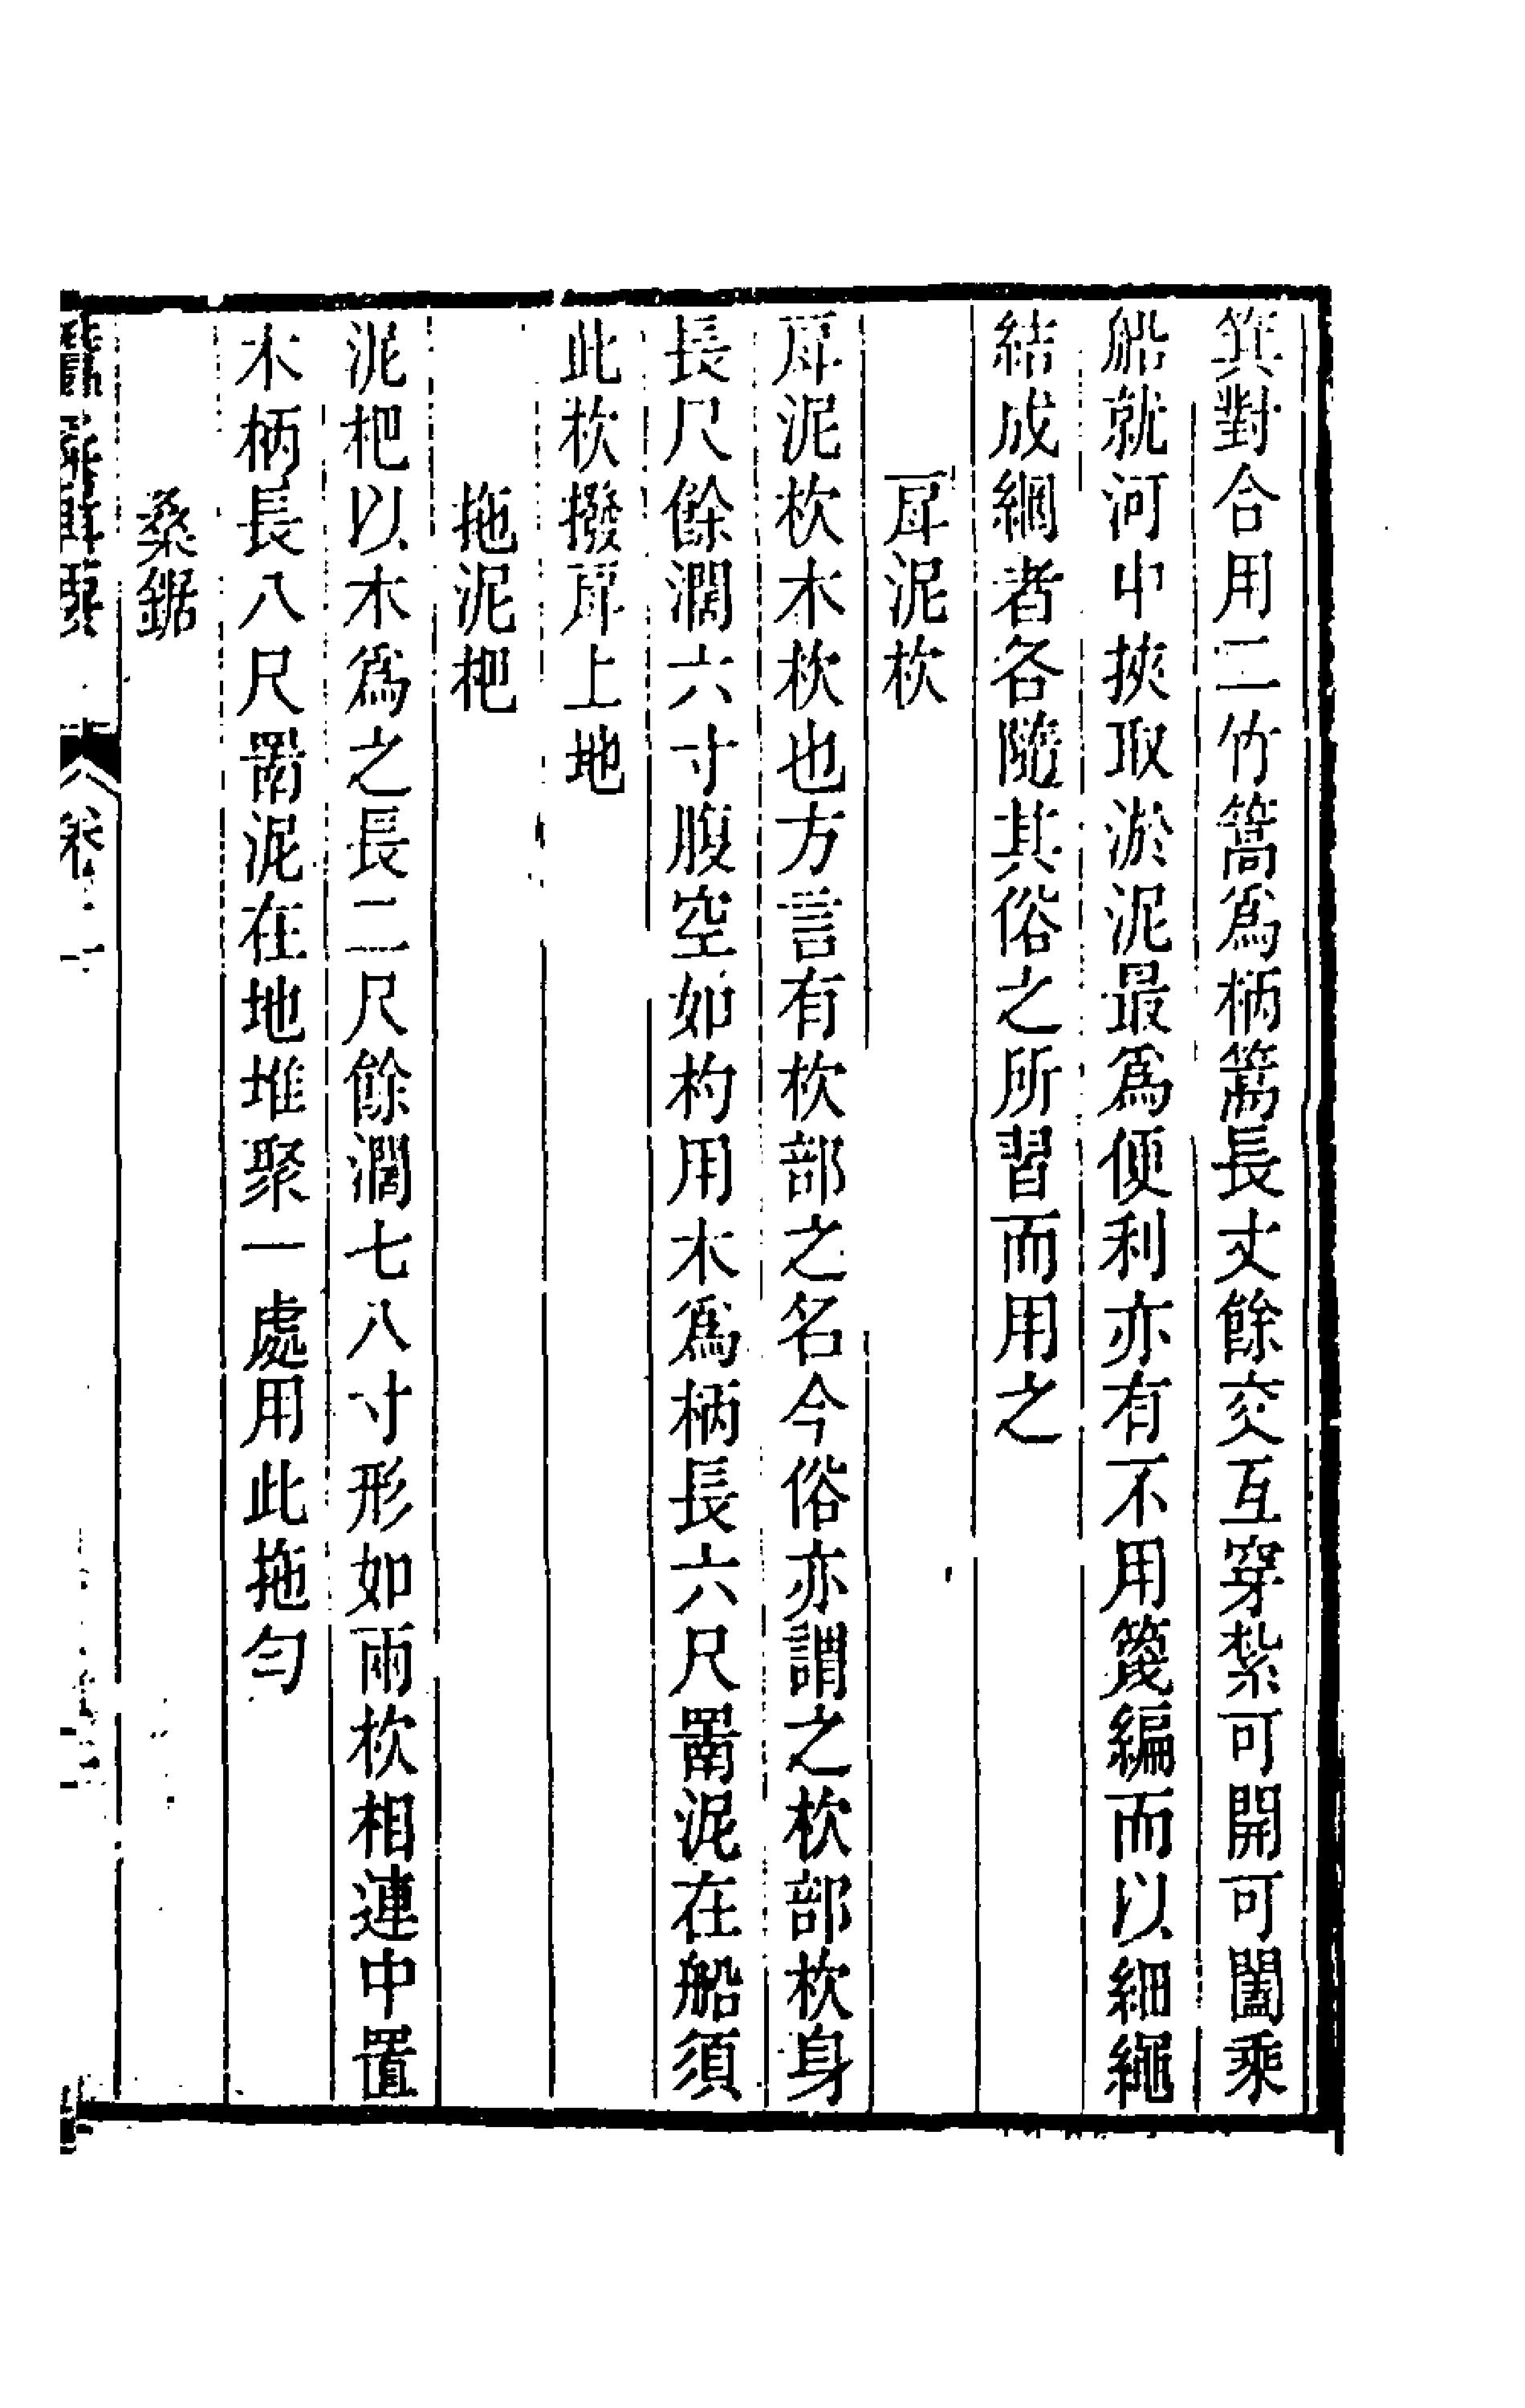 箕對合用二竹篙爲柄篙長丈餘交互穿紮可開可闔乘
船就河中挾取淤泥最爲便利亦有不用篾編而以細繩
結成網者各隨其俗之所習而用之
戽泥杴
戽泥杴木杴也方言有杴部之名今俗亦謂之杴部杴身
長尺餘濶六寸腹空如杓用木爲柄長六尺罱泥在船須
此杴撥戽上地
拖泥杷
泥杷以木爲之長二尺餘濶七八寸形如兩杴相連中置
木柄長八尺罱泥在地堆聚一處用此拖勻
桑鋸
蠶桑輯要 卷二